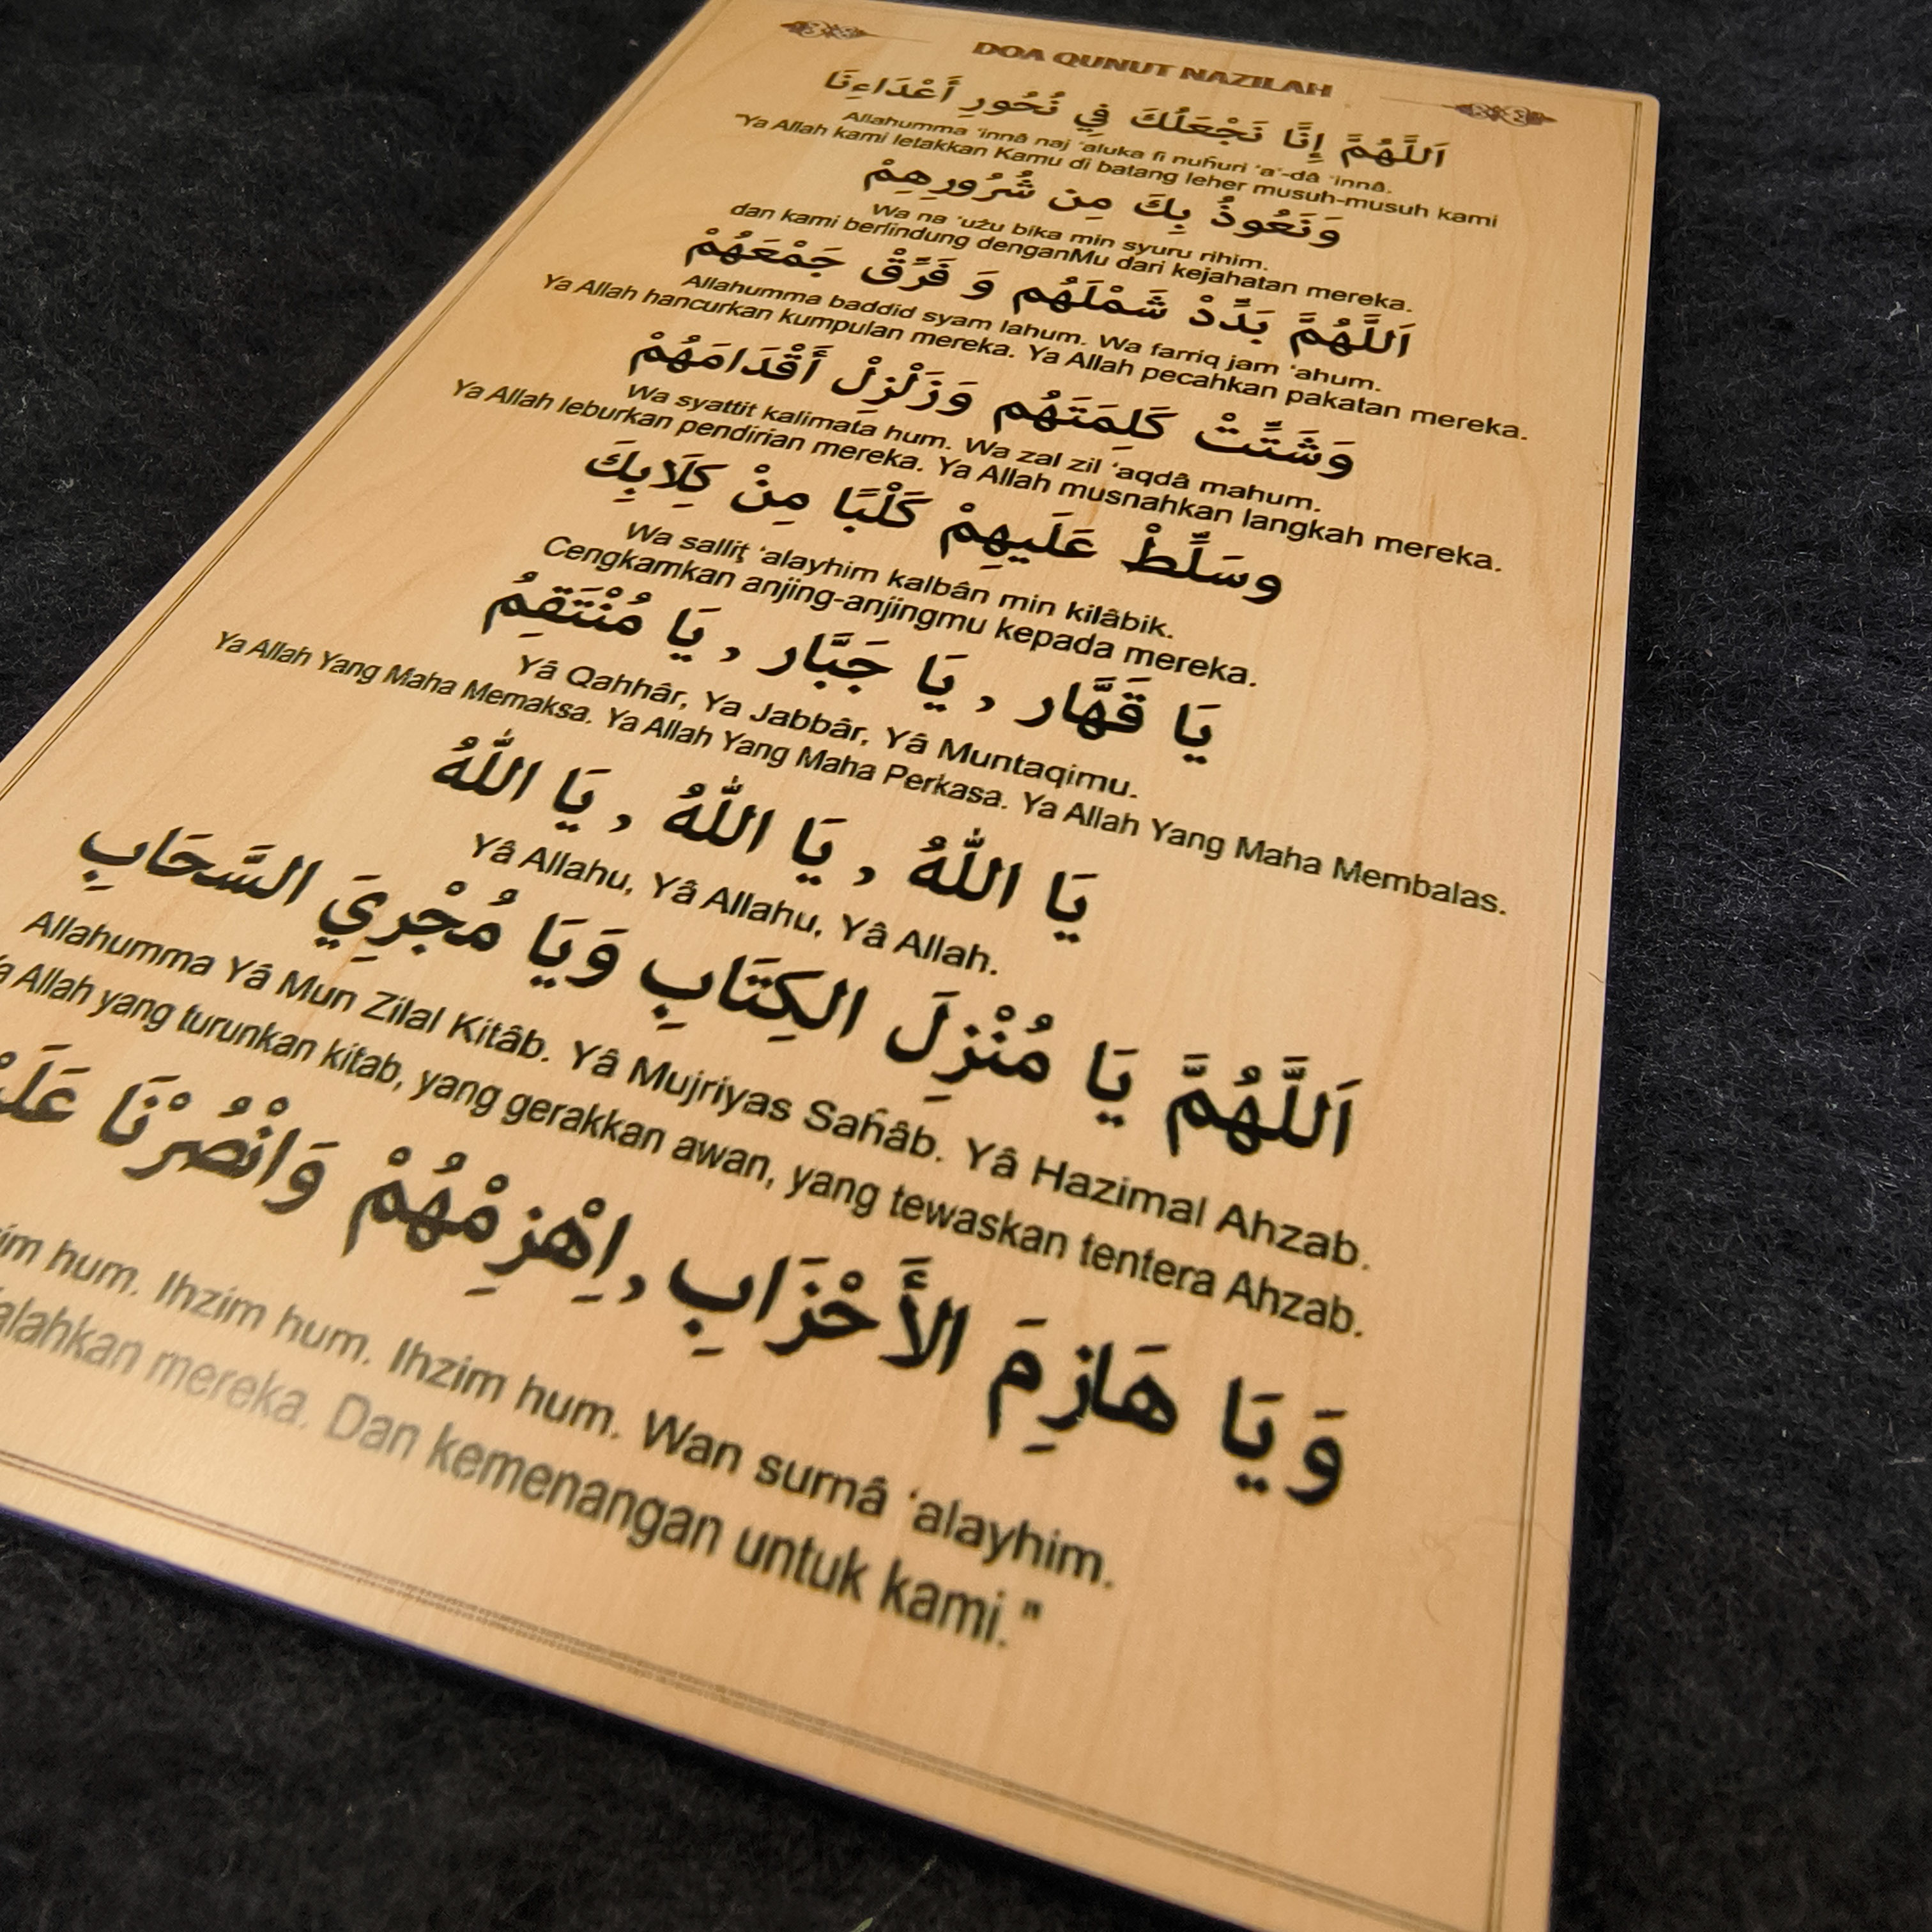 DOA QUNUT NAZILAH
اَللَّهُمَّ إِنَّا نَجْعَلُكَ فِي نُحُورِ أَعْدَاءِنَا
Allahumma 'innâ naj 'aluka fi nuĥuri 'a'-dâ 'innâ.
"Ya Allah kami letakkan Kamu di batang leher musuh-musuh kami
وَنَعُوذُ بِكَ مِن شُرُورِهِمْ
Wa na 'użu bika min syuru rihim.
dan kami berlindung denganMu dari kejahatan mereka.
اَللَّهُمَّ بَدِّدْ شَمْلَهُم وَ فَرِّقْ جَمْعَهُمْ
Allahumma baddid syam lahum. Wa farriq jam 'ahum.
Ya Allah hancurkan kumpulan mereka. Ya Allah pecahkan pakatan mereka.
وَشَتِّتْ كَلِمَتَهُم وَزَلْزِلْ أَقْدَامَهُمْ
Wa syattit kalimata hum. Wa zal zil 'aqdâ mahum.
Ya Allah leburkan pendirian mereka. Ya Allah musnahkan langkah mereka.
وسَلِّطْ عَلَيهِمْ كَلْبًا مِنْ كِلَابِكَ
Wa salliţ 'alayhim kalbân min kilâbik.
Cengkamkan anjing-anjingmu kepada mereka.
يَا قَهَّار , يَا جَبَّار , يَا مُنْتَقِمُ
Yâ Qahhâr, Ya Jabbâr, Yâ Muntaqimu.
Ya Allah Yang Maha Memaksa. Ya Allah Yang Maha Perkasa. Ya Allah Yang Maha Membalas.
يَا اللهُ , يَا اللهُ , يَا اللهُ
Yâ Allahu, Yâ Allahu, Yâ Allah.
اَللَّهُمَّ يَا مُنْزِلَ الكِتَابِ وَيَا مُجْرِيَ السَّحَابِ
Allahumma Yâ Mun Zilal Kitâb. Yâ Mujriyas Saĥâb. Yâ Hazimal Ahzab.
Allah yang turunkan kitab, yang gerakkan awan, yang tewaskan tentera Ahzab.
وَيَا هَازِمَ الأَحْزَابِ ,اِهْزِمْهُمْ وَانْصُرْنَا
hum. Ihzim hum. Ihzim hum. Wan surnâ 'alayhim.
mereka. Dan kemenangan untuk kami."